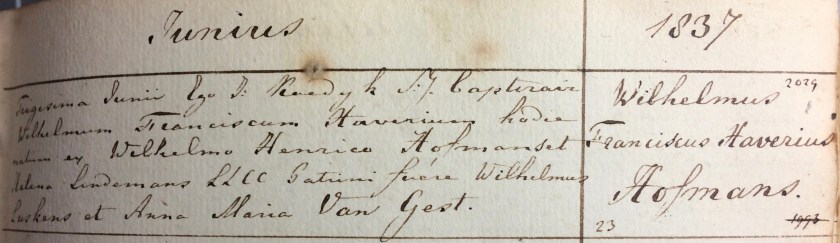 Junius
1837
Trigesima Junii Ego J: Roedyk S:J. baptizavi
Wilhelmum Franciscum Haverium hodie
natum ex Wilhelmo Henrico Hofmans et
Helena Lindemans LLCC Patrini fuére Wilhelmus
Luskens et Anna Maria Van Gest.
2029
Wilhelmus
Franciscus Haverius
Hofmans.
23 1993